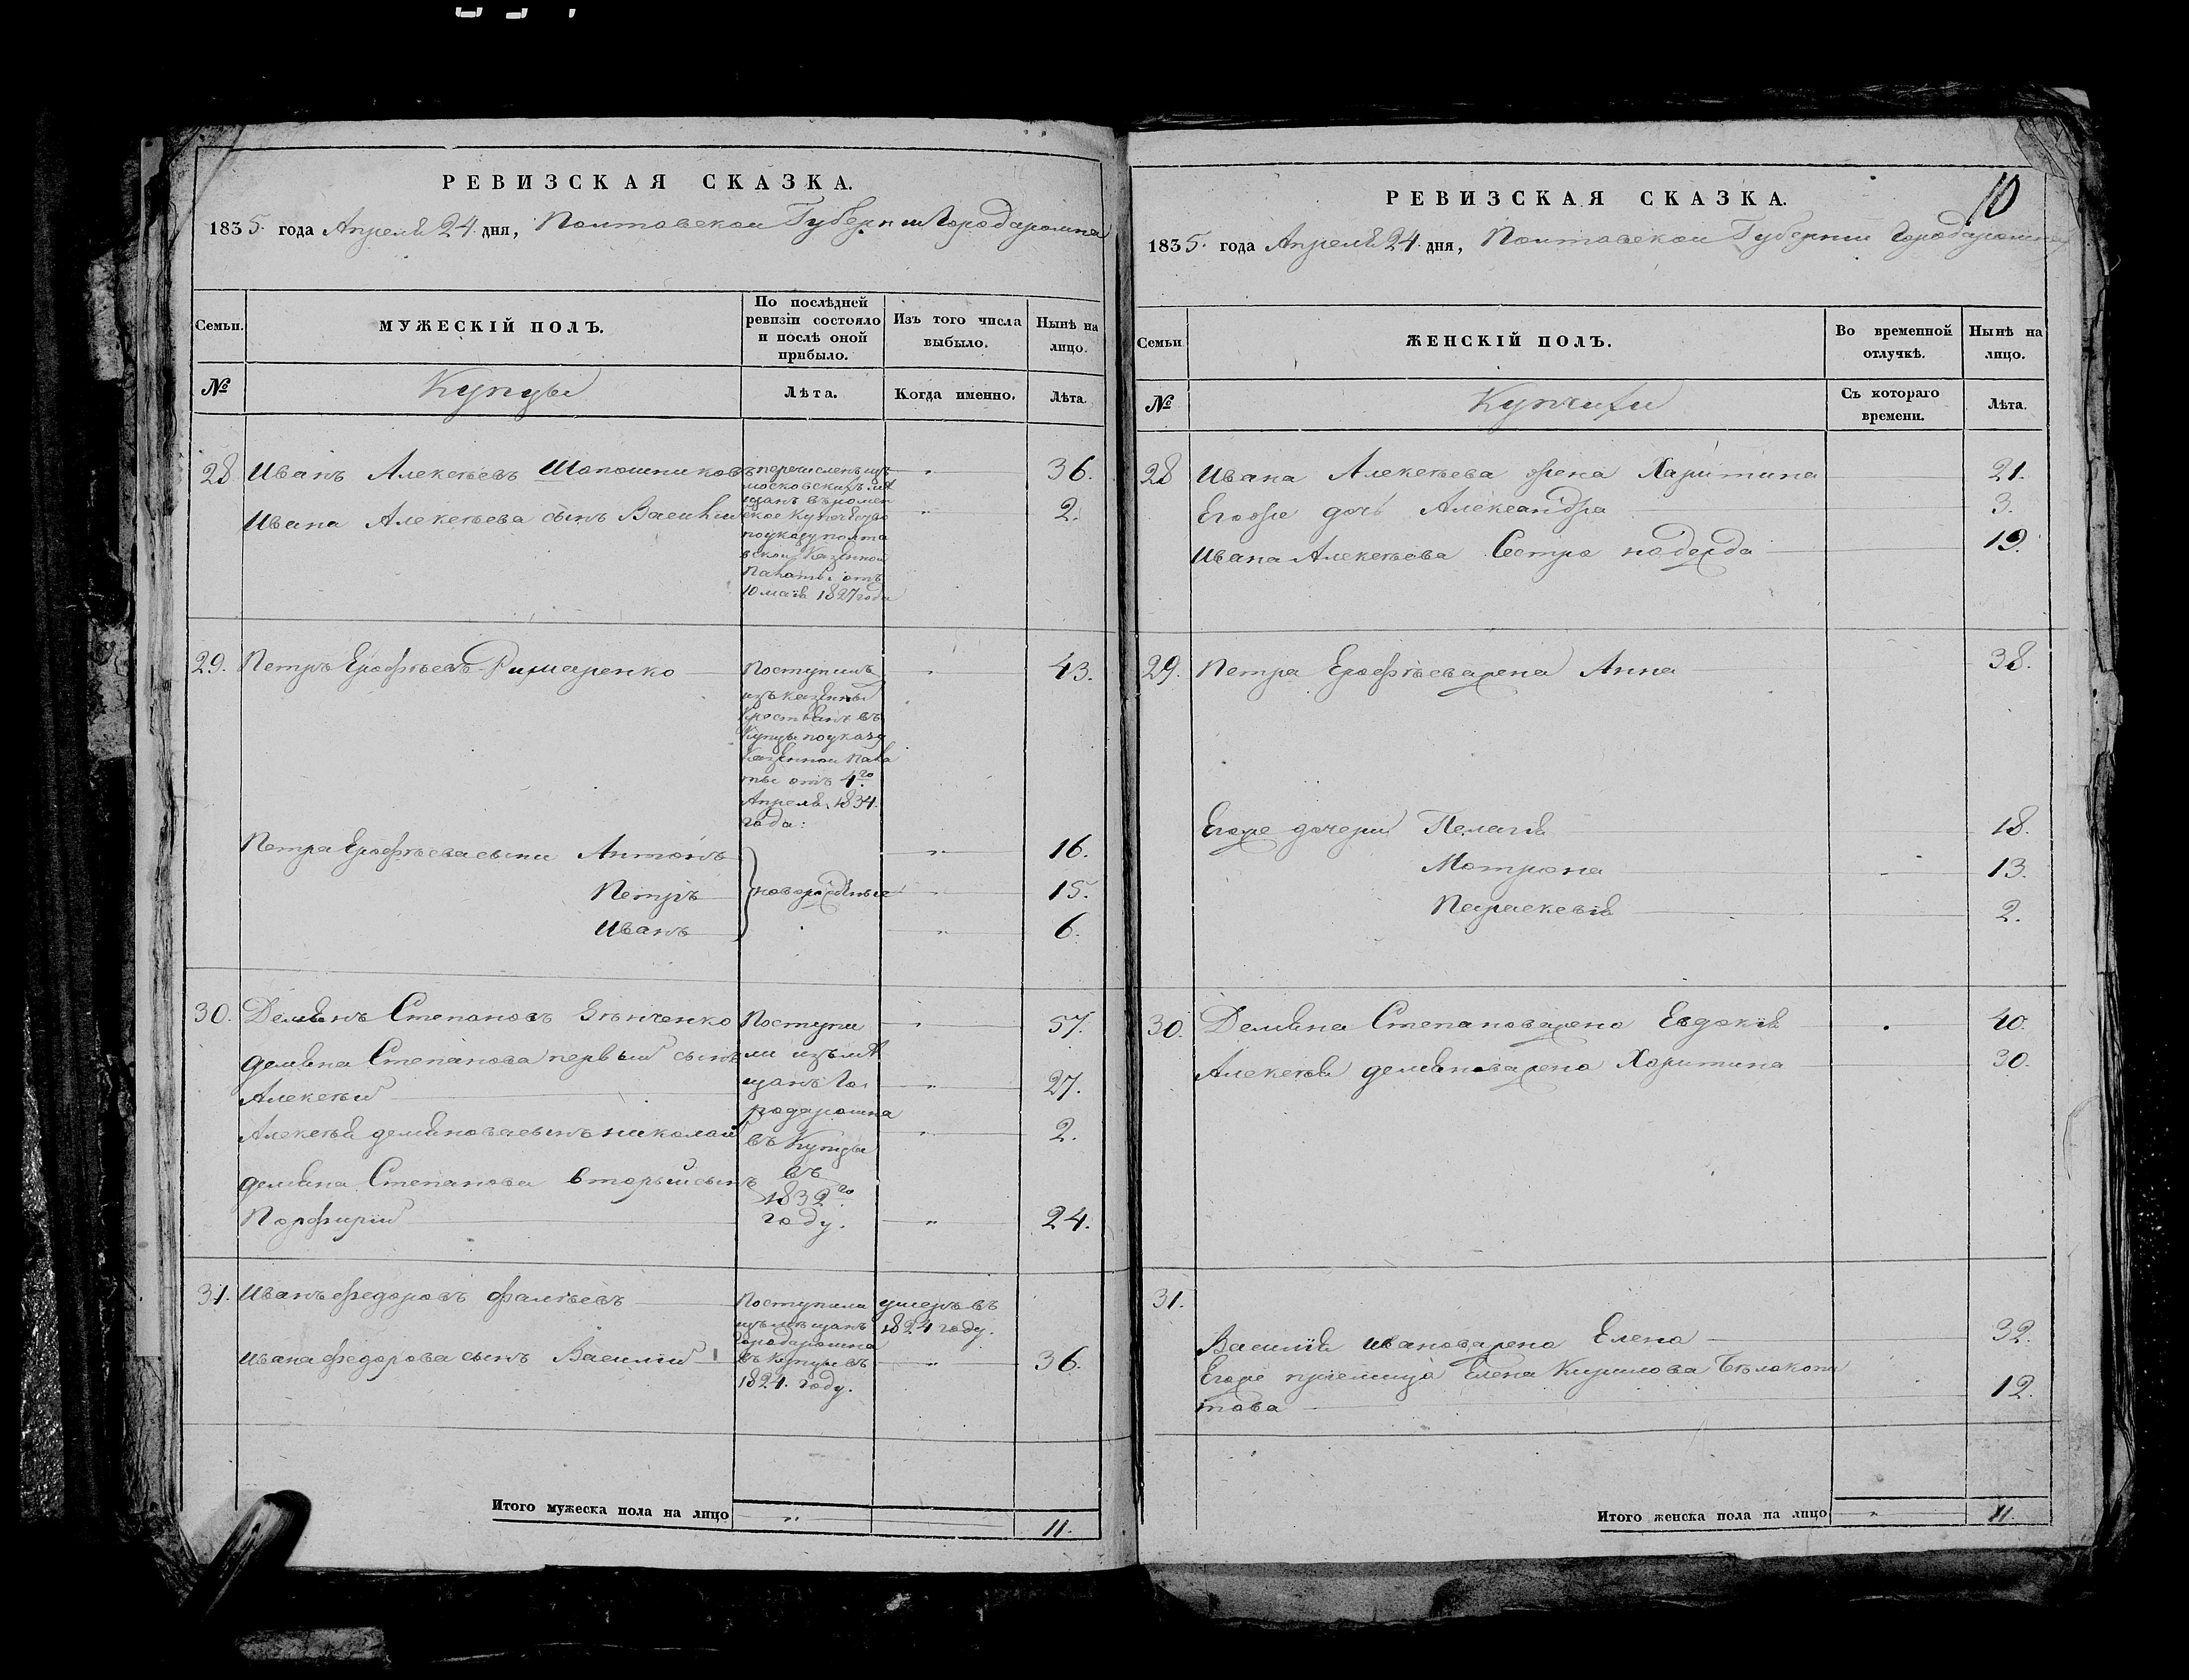 РЕВИЗСКАЯ СКАЗКА.
1835. года Апреля 24. дня, Полтавской Губернии Города Ромна
Семьи.
МУЖЕСКІЙ ПОЛЪ.
По послѣдней ревизіи состояло и послѣ оной прибыло.
Изъ того числа выбыло.
Нынѣ на лицо.
№
Купцы
Лѣта.
Когда именно.
Лѣта.
28 Иванъ Алексѣевъ Шапошниковъ 36.
Ивана Алексѣева сынъ Василий 2.
перечисленъ изъ
московскихъ мѣ
щанъ въ ромен
ское купечество
по указу полта
вской Казенной
Палаты отъ
10 маія 1827 года
29. Петръ Ерофѣевъ Римаренко 43.
Поступилъ
изъ казенныхъ
Крестьянъ въ
Купцы по указу
Казенной Пала
ты отъ 4го
Апреля 1834.
года:
Петра Ерофѣева сыны Антонъ 16.
Петръ новорожденные 15.
Иванъ 6.
30. Демьянъ Степановъ Зѣнченко 57.
Демьяна Степанова первый сынъ
Алексѣй 27.
Алексѣя Демьянова сынъ Николай 2.
Демьяна Степанова вторый сынъ
Порфирий 24.
Поступи
ли изъ мѣ
щанъ Го
рода ромна
въ Купцы
въ
1832го
году.
31. Иванъ Федоровъ Фалѣевъ
умеръ въ
1824 году.
Ивана Федорова сынъ Василий 36.
Поступили
изъ мѣщанъ
Города ромна
въ купцы въ
1824. году.
Итого мужеска пола на лицо 11.
10
РЕВИЗСКАЯ СКАЗКА.
1835. года Апреля 24. дня, Полтавской Губернии Города ромна
Семьи
ЖЕНСКІЙ ПОЛЪ.
Во временной отлучкѣ.
Нынѣ на лицо.
№
Купчихи
Съ котораго времени.
Лѣта.
28 Ивана Алексѣева жена Харитина 21.
Его же дочь Александра 3.
Ивана Алексѣева Сестра надежда 19.
29. Петра Ерофѣева жена Анна 38.
Его же дочери Пелагія 18.
Мотрона 13.
Параскевія 2.
30. Демьяна Степанова жена Евдокія 40.
Алексѣя Демьянова жена Харитина 30.
31.
Василія Иванова жена Елена 32.
Его же приемица Елена Кирилова Бѣлокопи
това 12.
Итого женска пола на лицо 11.